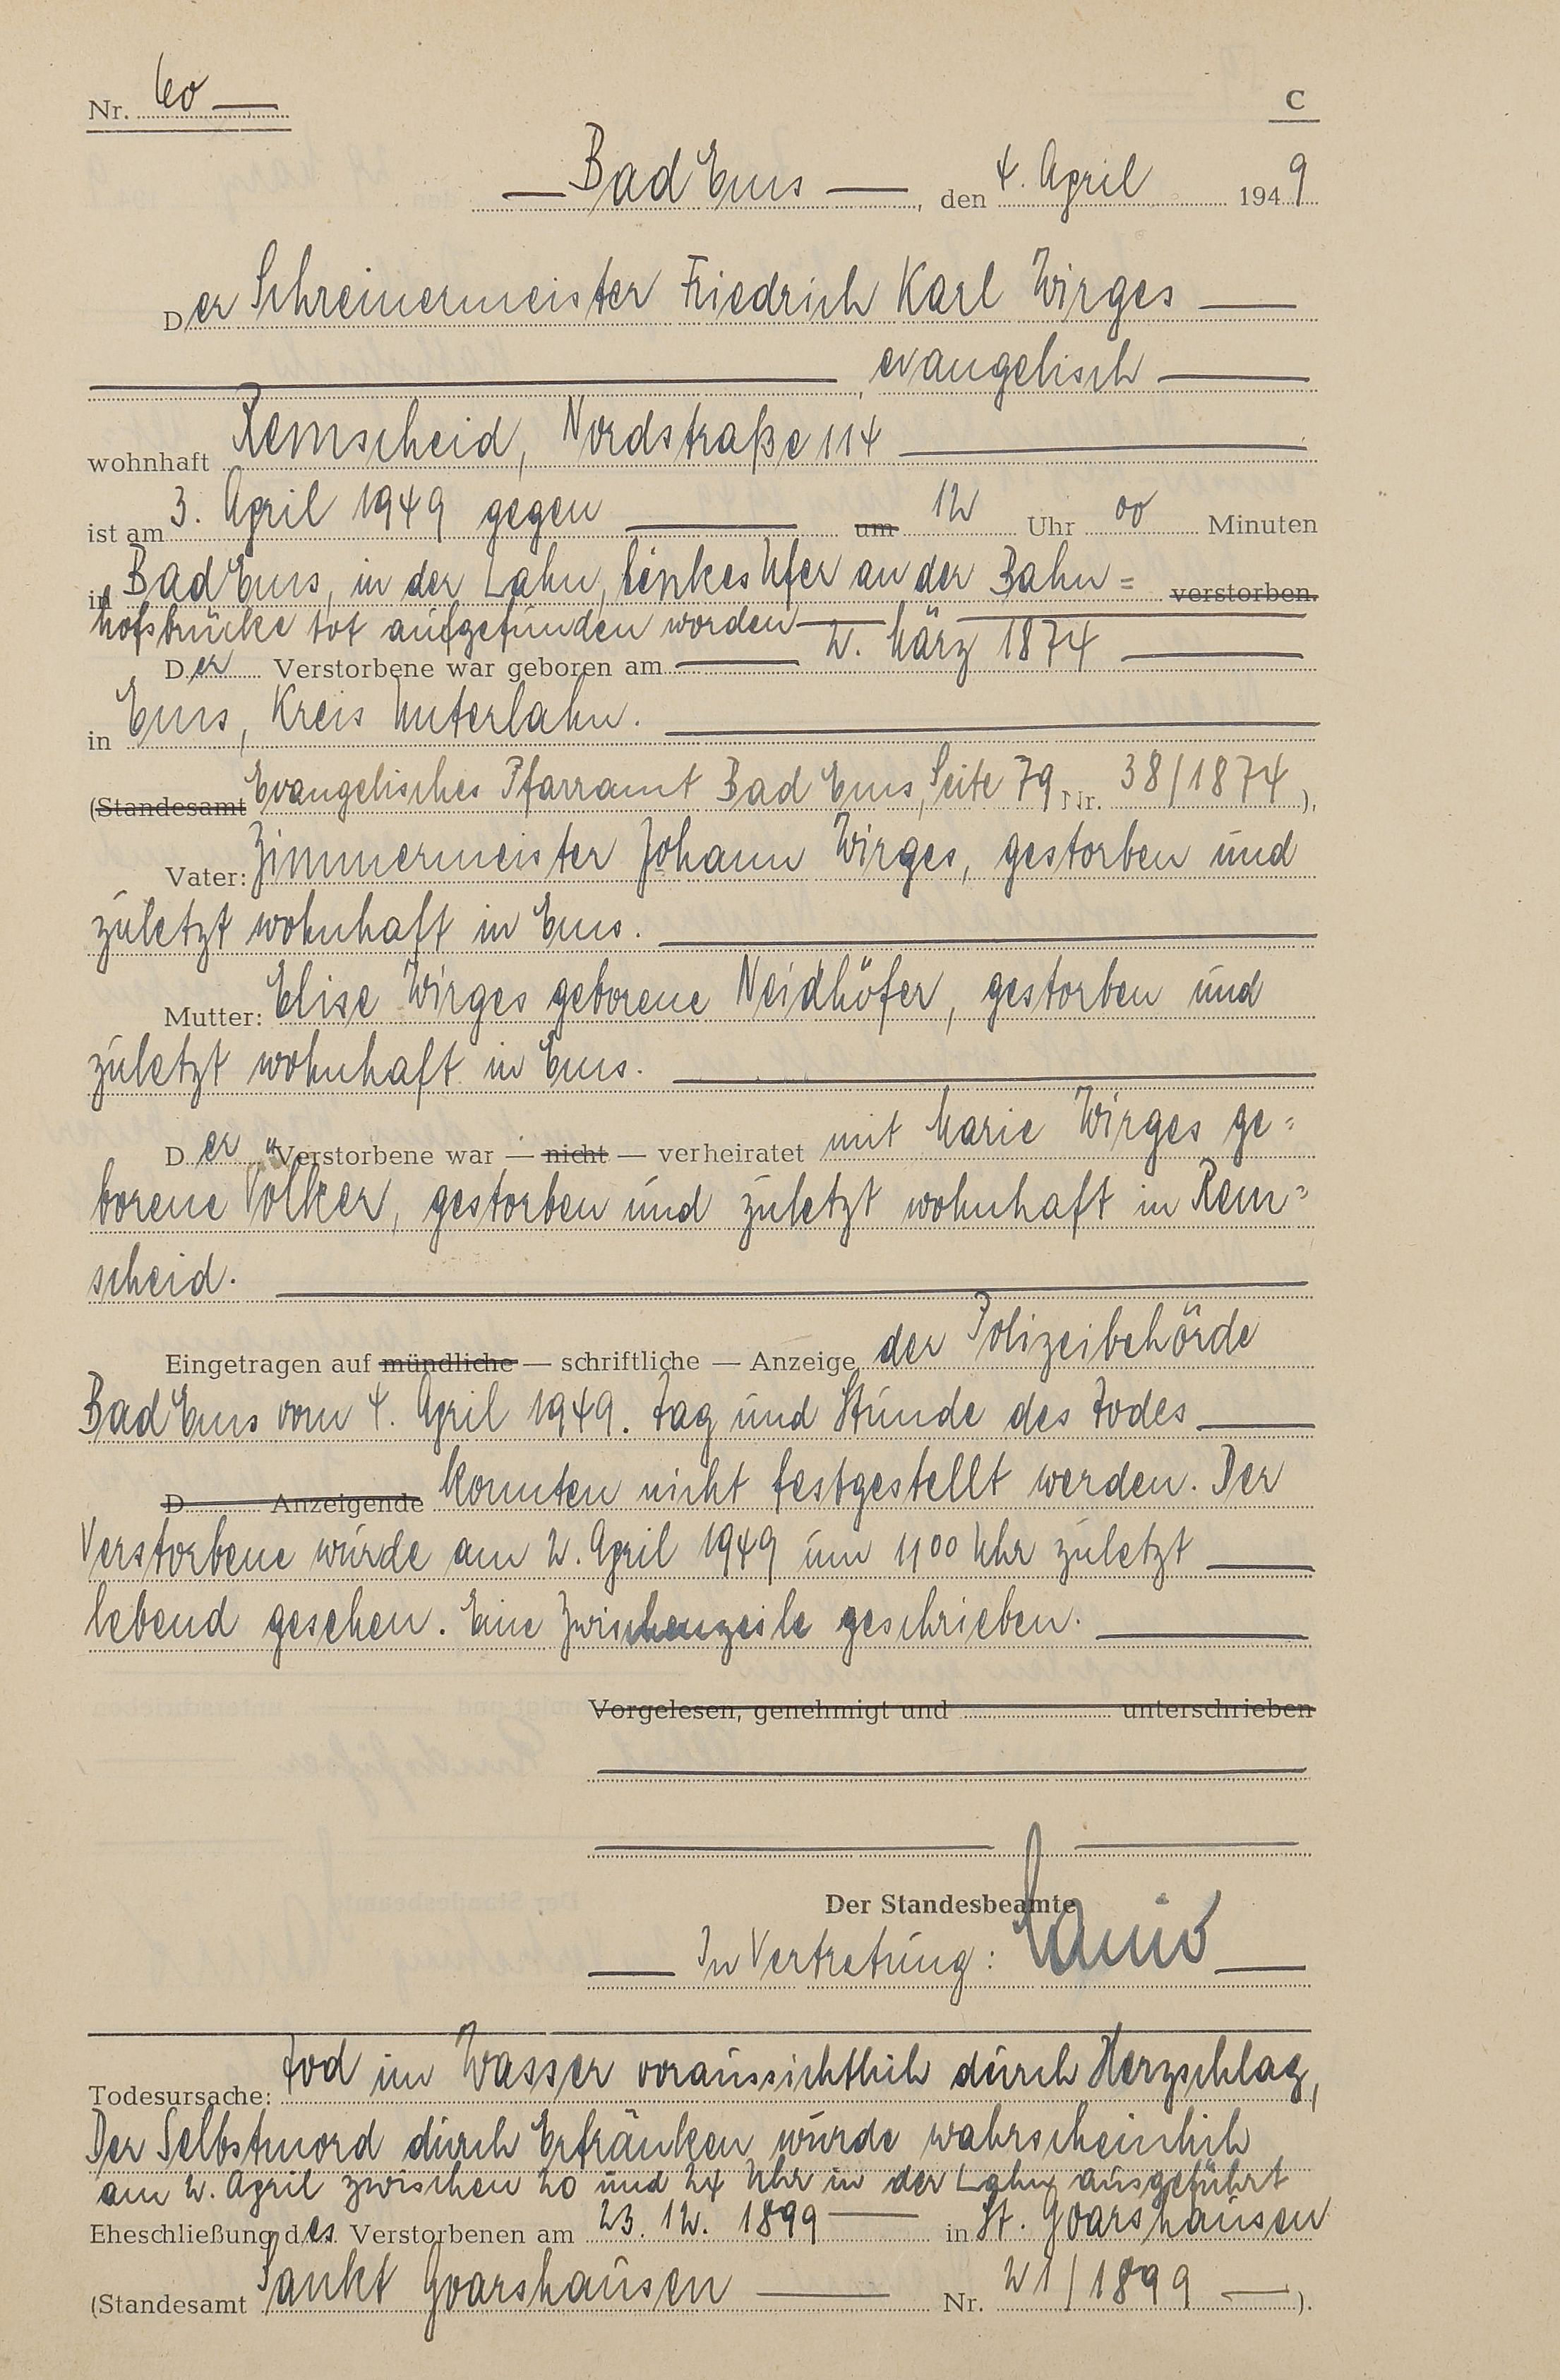 Nr. 60 —
C
— Bad Ems —, den 4. April 1949
Der Schreinermeister Friedrich Karl Wirges —
—, evangelisch —
wohnhaft Remscheid, Nordstraße 114 —
ist am 3. April 1949 gegen — um 12 Uhr 00 Minuten
in Bad Ems, in der Lahn, linkes Ufer an der Bahn= verstorben.
hofsbrücke tot aufgefunden worden —
Der Verstorbene war geboren am — 2. März 1874 —
in Ems, Kreis Unterlahn. —
(Standesamt Evangelisches Pfarramt Bad Ems, Seite 79 Nr. 38/1874),
Vater: Zimmermeister Johann Wirges, gestorben und
zuletzt wohnhaft in Ems. —
Mutter: Elise Wirges geborene Neidhöfer, gestorben und
zuletzt wohnhaft in Ems. —
Der Verstorbene war — nicht — verheiratet mit Marie Wirges ge=
borene Völker, gestorben und zuletzt wohnhaft in Rem=
scheid. —
Eingetragen auf mündliche — schriftliche — Anzeige der Polizeibehörde
Bad Ems vom 4. April 1949. Tag und Stunde des Todes —
D Anzeigende konnten nicht festgestellt werden. Der
Verstorbene wurde am 2. April 1949 um 11 00 Uhr zuletzt —
lebend gesehen. Eine Zwischenzeile geschrieben. —
Vorgelesen, genehmigt und unterschrieben
Der Standesbeamte
— In Vertretung: —
Todesursache: Tod im Wasser voraussichtlich durch Herzschlag,
Der Selbstmord durch Ertränken wurde wahrscheinlich
am 2. April zwischen 20 und 24 Uhr in der Lahn ausgeführt
Eheschließung des Verstorbenen am 23. 12. 1899 — in St. Goarshausen
(Standesamt Sankt Goarshausen — Nr. 21/1899 —).